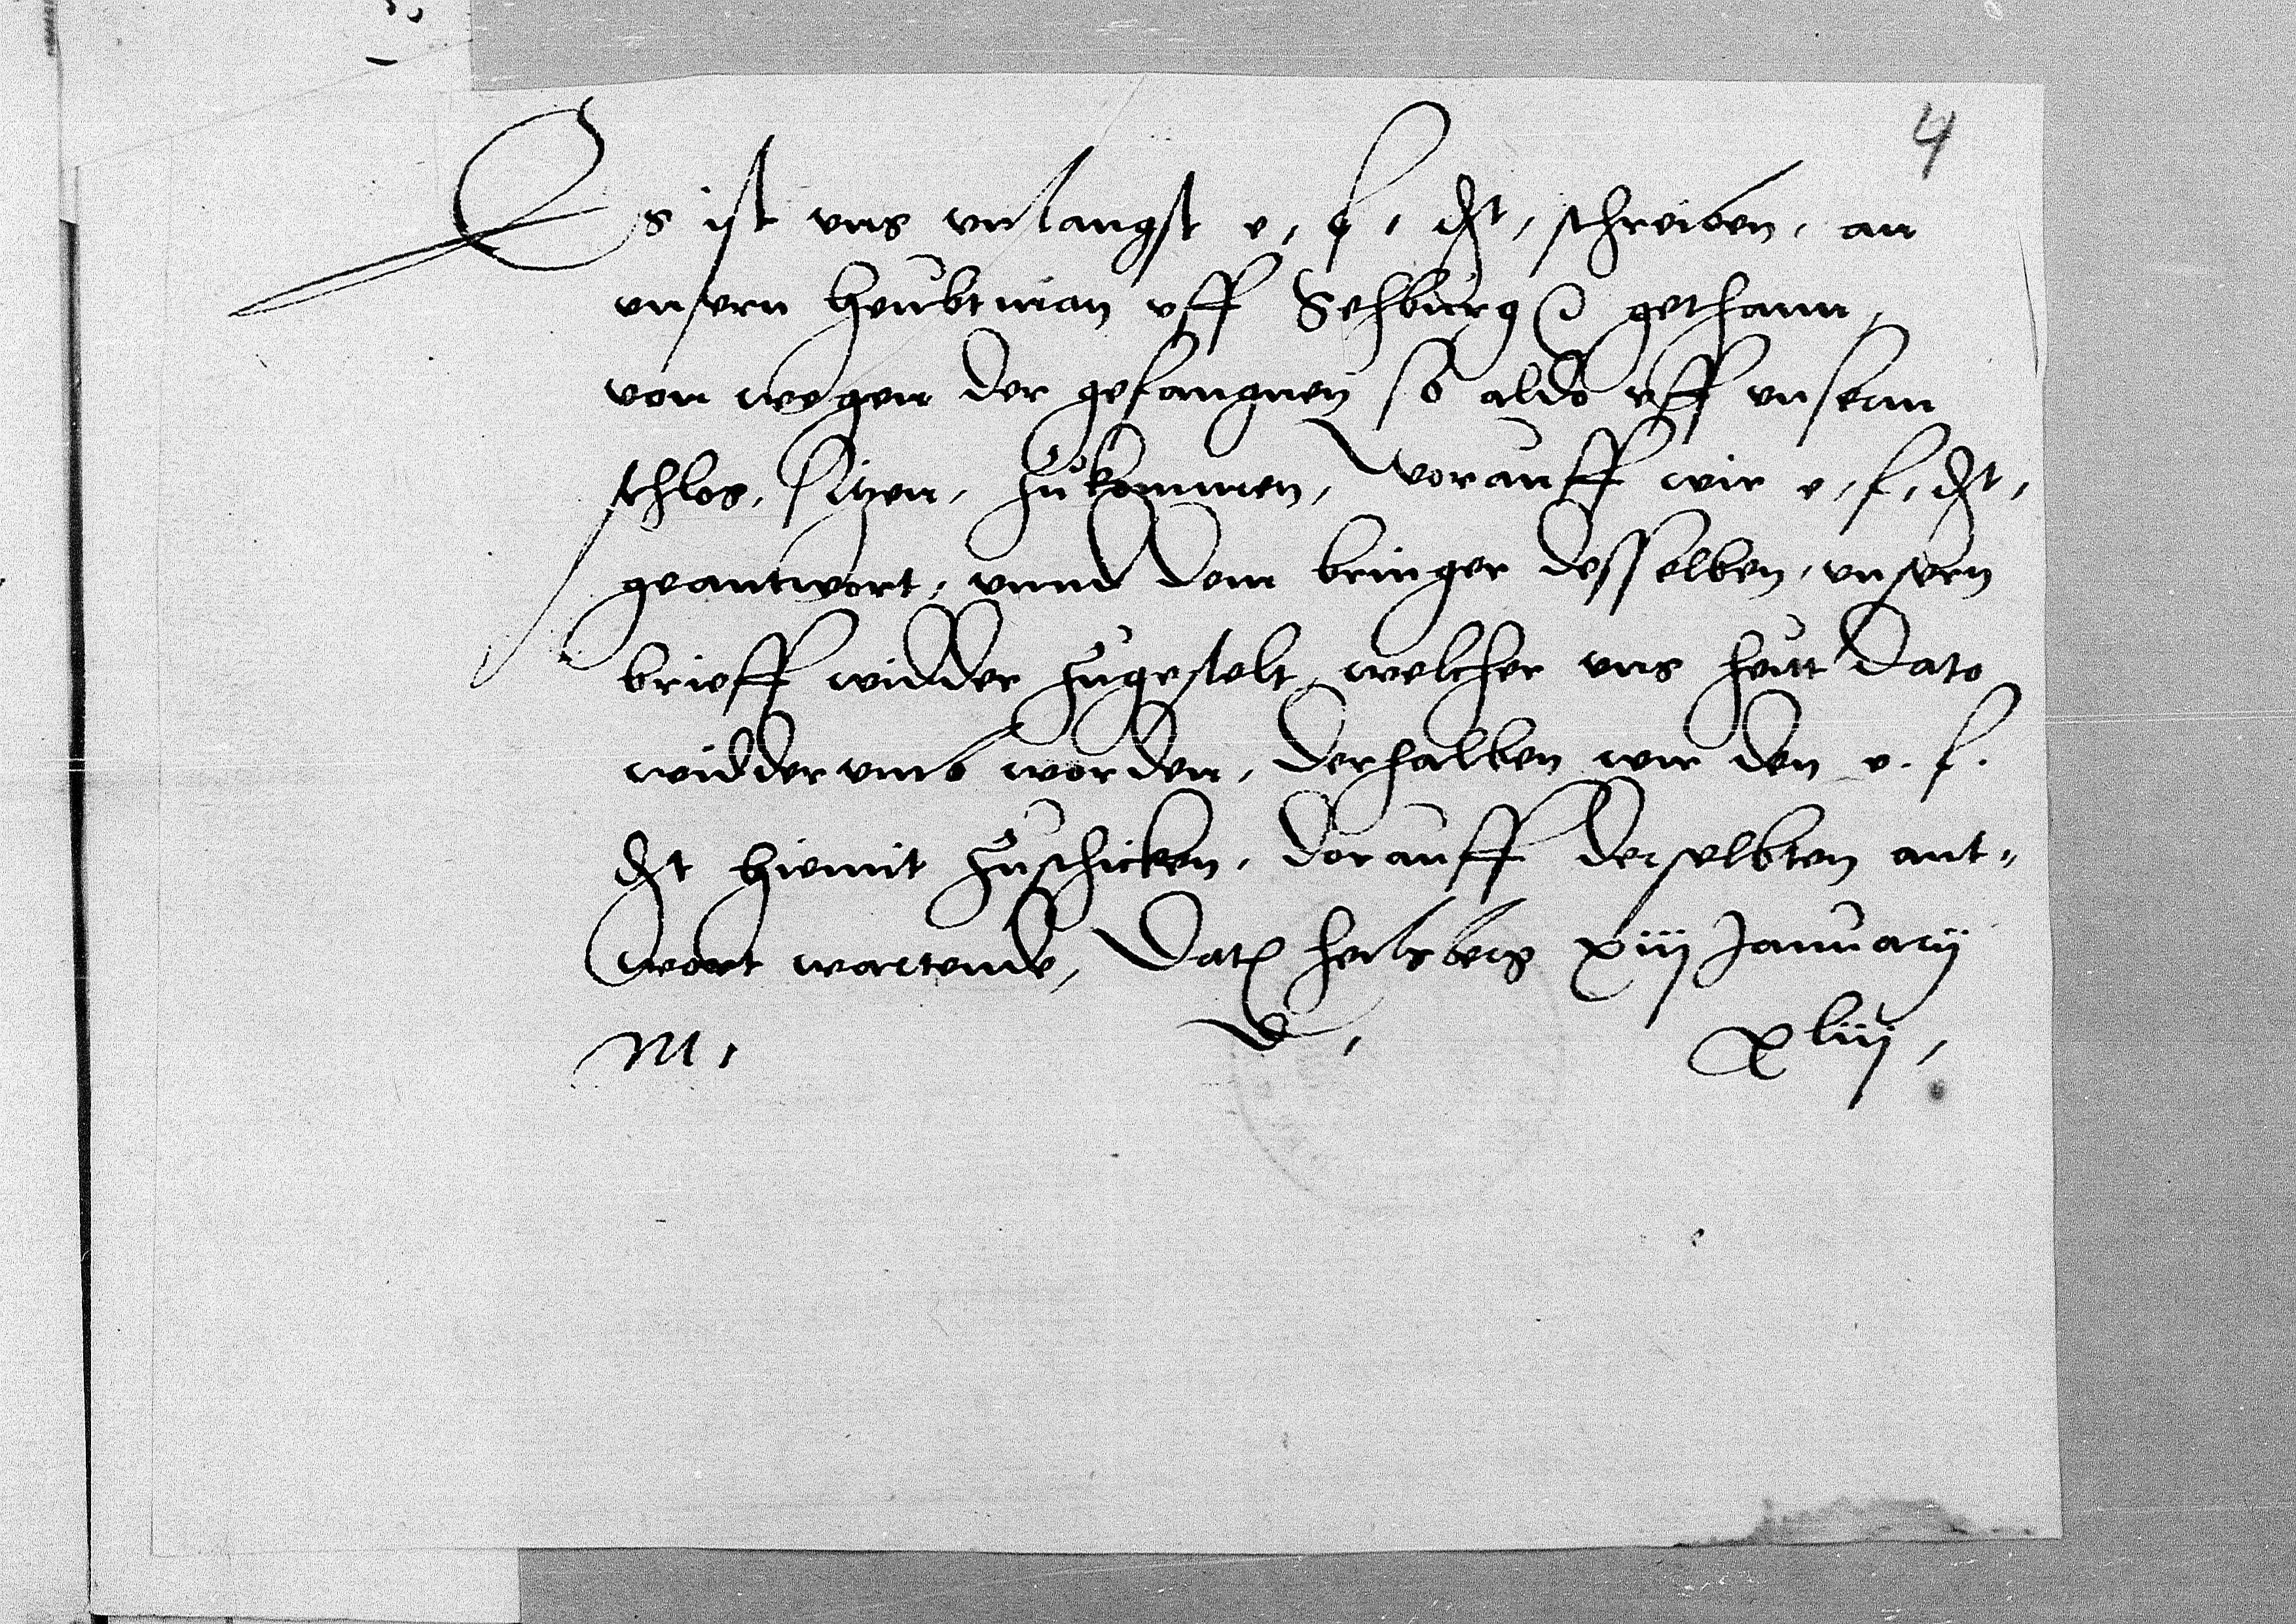 4
Es ist vns vnlangst e, f, dt, schreiben, an
vnsern heubtman vff Sehburg gethann,
von wegen der gefangnen so aldo vff vnserm
schlos, sitzen, zukommen, worauff wir e, f, dt,
geantwort, vnnd dem bringer desselben, vnsern
brieff widder zugestelt, welcher vns heut dato
widder vmb worden, derhalben wir den e. f.
dt hiemit zuschicken, dorauff derselbten ant-
wort wartende, Dat heilsberg xiij January
M, D, xliij,